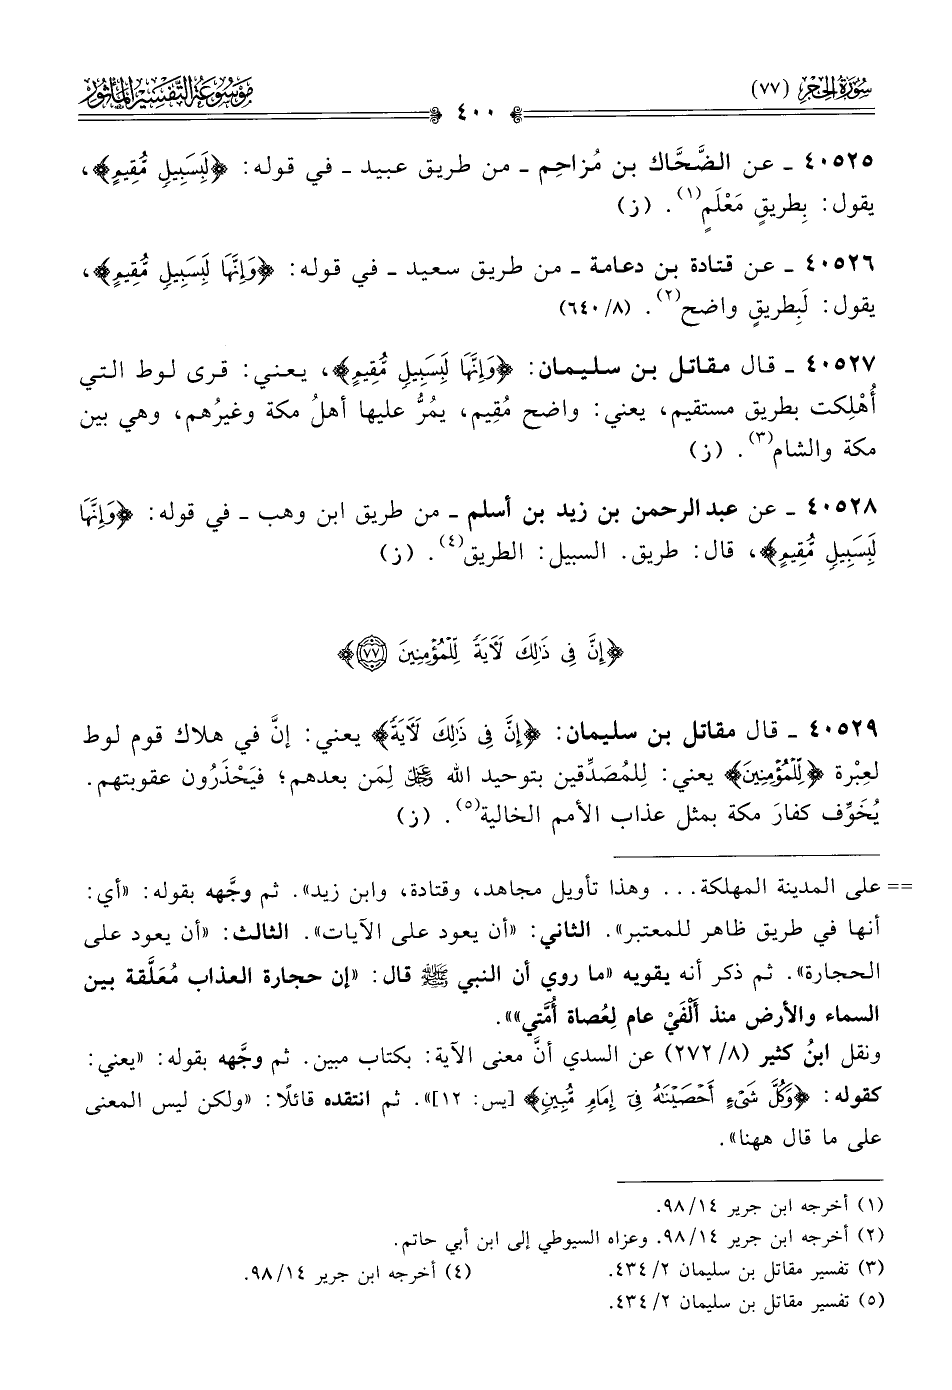 سورة الحجر (٧٧)
٤٠٠
موسوعة التفسير المأثور
٤٠٥٢٥ ـ عن الضَّحَّاك بن مُزاحِم ـ من طريق عبيد ـ في قوله: ﴿لَبِسَبِيلٍ مُّقِيمٍ﴾،
يقول: بِطريقٍ مَعْلَمٍ(١). (ز)
٤٠٥٢٦ ـ عن قتادة بن دعامة ـ من طريق سعيد ـ في قوله: ﴿وَإِنَّهَا لَبِسَبِيلٍ مُّقِيمٍ﴾،
يقول: لَبِطريقٍ واضح(٢). (٨/ ٦٤٠)
٤٠٥٢٧ ـ قال مقاتل بن سليمان: ﴿وَإِنَّهَا لَبِسَبِيلٍ مُّقِيمٍ﴾، يعني: قرى لوط التي
أُهْلِكت بطريق مستقيم، يعني: واضح مُقِيم، يمُرُّ عليها أهلُ مكة وغيرُهم، وهي بين
مكة والشام(٣). (ز)
٤٠٥٢٨ ـ عن عبد الرحمن بن زيد بن أسلم ـ من طريق ابن وهب ـ في قوله: ﴿وَإِنَّهَا
لَبِسَبِيلٍ مُّقِيمٍ﴾، قال: طريق. السبيل: الطريق(٤). (ز)
﴿إِنَّ فِى ذَٰلِكَ لَآيَةً لِّلْمُؤْمِنِينَ ٧٧﴾
٤٠٥٢٩ ـ قال مقاتل بن سليمان: ﴿إِنَّ فِى ذَٰلِكَ لَآيَةً﴾ يعني: إنَّ في هلاك قوم لوط
لعِبْرة ﴿لِّلْمُؤْمِنِينَ﴾ يعني: لِلمُصَدِّقين بتوحيد الله ﷿ لِمَن بعدهم؛ فيَحْذَرُون عقوبتهم.
يُخَوِّف كفارَ مكة بمثل عذاب الأمم الخالية(٥). (ز)
== على المدينة المهلكة... وهذا تأويل مجاهد، وقتادة، وابن زيد». ثم وجَّهه بقوله: «أي:
أنها في طريق ظاهر للمعتبر». الثاني: «أن يعود على الآيات». الثالث: «أن يعود على
الحجارة». ثم ذكر أنه يقويه «ما روي أن النبي ﷺ قال: «إن حجارة العذاب مُعَلَّقة بين
السماء والأرض منذ أَلْفَيْ عام لِعُصاة أُمَّتي»».
ونقل ابنُ كثير (٨/ ٢٧٢) عن السدي أنَّ معنى الآية: بكتاب مبين. ثم وجَّهه بقوله: «يعني:
كقوله: ﴿وَكُلَّ شَىْءٍ أَحْصَيْنَٰهُ فِىٓ إِمَامٍ مُّبِينٍ﴾ [يس: ١٢]». ثم انتقده قائلًا: «ولكن ليس المعنى
على ما قال ههنا».
(١) أخرجه ابن جرير ١٤/ ٩٨.
(٢) أخرجه ابن جرير ١٤/ ٩٨. وعزاه السيوطي إلى ابن أبي حاتم.
(٣) تفسير مقاتل بن سليمان ٢/ ٤٣٤. (٤) أخرجه ابن جرير ١٤/ ٩٨.
(٥) تفسير مقاتل بن سليمان ٢/ ٤٣٤.